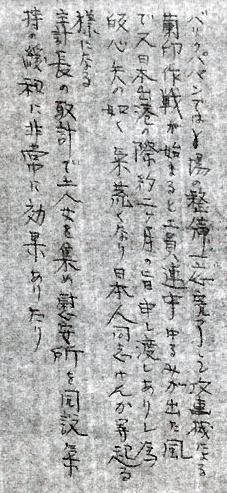 バリクパパンでは場の整備一応完了して攻撃機による
蘭印作戦が始まると工員連中ゆるみが出た風
で又日本出港の際約二ヶ月の旨申し渡しありし為
皈心矢の如く気荒くなり日本人同志けんか等起る
様になる
主計長の取計で土人女を集め慰安所を開設気
持の緩和に非常に効果ありたり